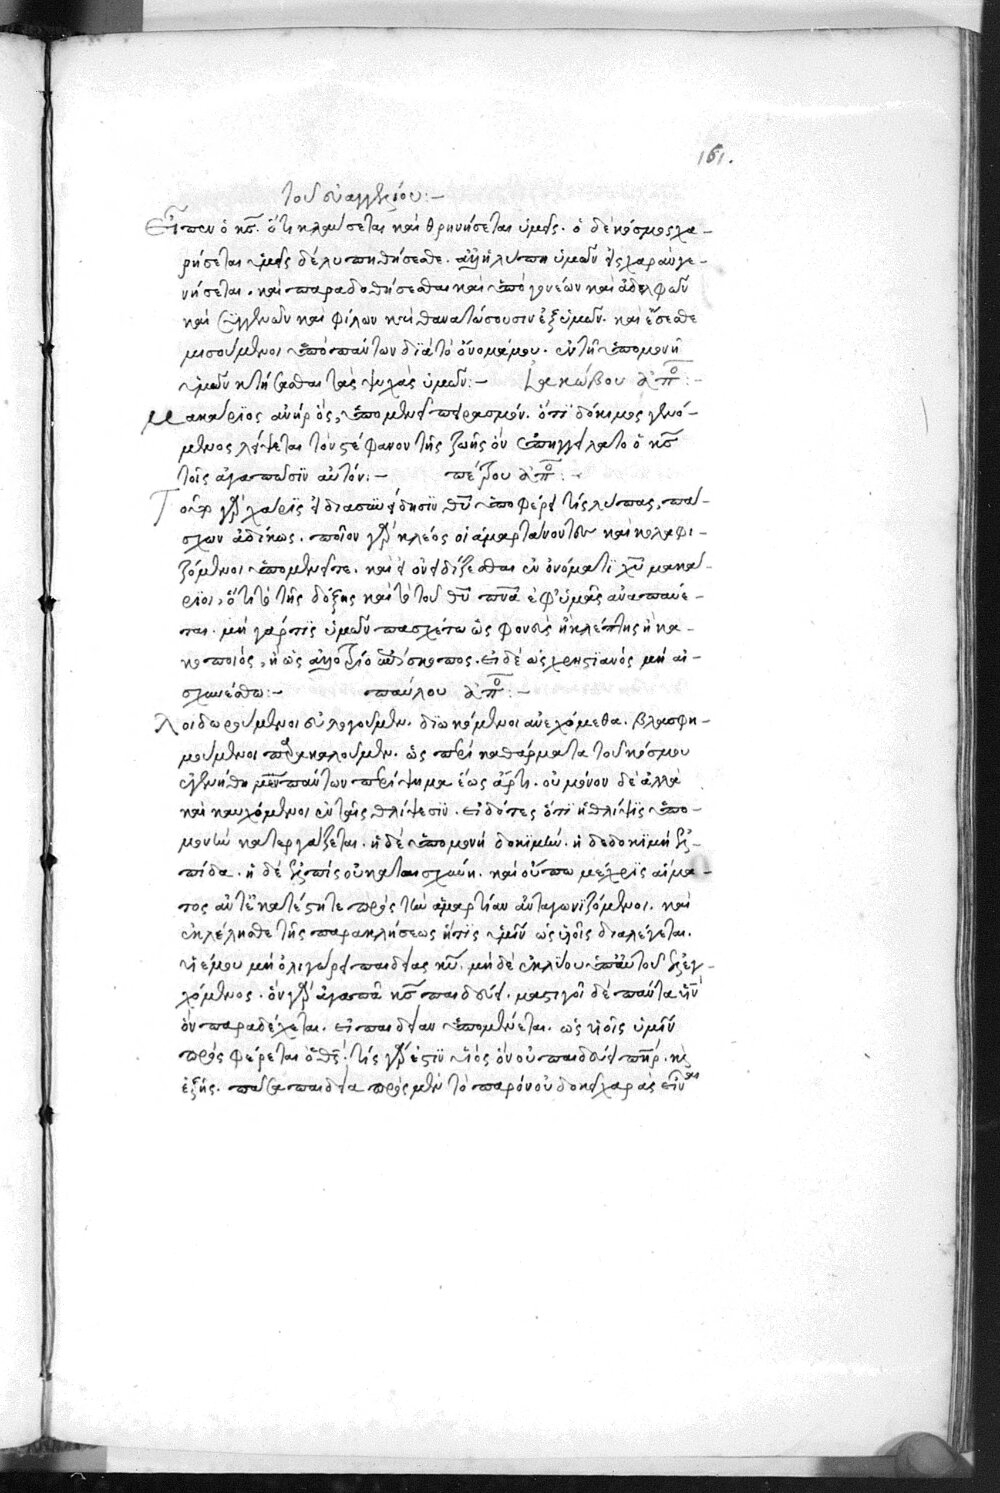 161.
τοῦ εὐαγγελίου:-
Εἶπεν ὁ κς. ὅτι κλαύσεται καὶ θρηνήσεται ὑμεῖς. ὁ δὲ κόσμος χα-
ρήσεται ὑμεῖς δὲ λυπηθήσεσθε. ἀλλ' ἡ λύπη ὑμῶν εἰς χαρὰν γε-
νήσεται. καὶ παραδοθήσεσθαι καὶ ὑπὸ γονέων καὶ ἀδελφῶν
καὶ συγγενῶν καὶ φίλων καὶ θανατώσουσιν ἐξ ὑμῶν. καὶ ἔσεσθε
μισούμενοι ὑπὸ πάντων διὰ τὸ ὄνομά μου. ἐν τῇ ὑπομονῇ
ὑμῶν κτήσασθαι τὰς ψυχὰς ὑμῶν:- Ἰακώβου ἀπο:-
Μακάριος ἀνὴρ ὃς ὑπομένει πειρασμόν. ὅτι δόκιμος γενό-
μενος λήψεται τὸν στέφανον τῆς ζωῆς ὃν ἐπηγγείλατο ὁ κς
τοῖς ἀγαπῶσιν αὐτόν:- πέτρου ἀπο:-
Τοῦτο γὰρ χάρις εἰ διὰ συνείδησιν θυ ὑποφέρει τίς λύπας, πά-
σχων ἀδίκως. ποῖον γὰρ κλέος οἱ ἁμαρτάνοντες καὶ κολαφι-
ζόμενοι ὑπομένειτε. καὶ εἰ ὀνειδίζεσθαι ἐν ὀνόματι χυ μακά-
ριοι, ὅτι τὸ τῆς δόξης καὶ τὸ τοῦ θυ πνα ἐφ' ὑμᾶς ἀναπαύε-
ται. μὴ γάρ τις ὑμῶν πασχέτω ὡς φονεὺς ἢ κλέπτης ἢ κα-
κοποιὸς, ἢ ὡς ἀλλοτριοεπίσκοπος. εἰ δὲ ὡς χρηστιανός μὴ αἰ-
σχυνέσθω:- παύλου ἀπο:-
Λοιδωρούμενοι εὐλογοῦμεν. διωκόμενοι ἀνεχόμεθα. βλασφη-
μούμενοι παρακαλοῦμεν. ὡς περὶ καθάρματα τοῦ κόσμου
ἐγενήθημεν πάντων περίψημα ἕως ἄρτι. οὐ μόνον δὲ ἀλλὰ
καὶ καυχόμενοι ἐν ταῖς θλίψεσιν. εἰδότες ὅτι ἡ θλίψις ὑπο-
μονὴν κατεργάζεται. ἡ δὲ ὑπομονὴ δοκιμήν. ἡ δὲ δοκιμὴ ἐλ-
πίδα. ἡ δὲ ἐλπὶς οὐ καταισχύνει. καὶ οὔπω μέχρις αἵμα-
τος ἀντικατέστητε πρὸς τὴν ἁμαρτίαν ἀνταγωνιζόμενοι. καὶ
ἐκλέλησθε τῆς παρακλήσεως ἥτις ὑμῖν ὡς υἱοῖς διαλέγεται.
υἱέ μου μὴ ὀλιγώρει παιδείας κυ. μὴ δὲ ἐκλύου ὑπ' αὐτοῦ ἐλεγ-
χόμενος. ὃν γὰρ ἀγαπᾶ κς παιδεύει. μαστιγοῖ δὲ πάντα υἱὸν
ὃν παραδέχεται. εἰ παιδείαν ὑπομένεται. ὡς υἱοῖς ὑμῖν
προσφέρεται ὁ θς. τίς γάρ ἐστιν υἱὸς ὃν οὐ παιδεύει πηρ. καὶ
ἑξῆς. πᾶσα παιδεία πρὸς μὲν τὸ παρὸν οὐ δοκεῖ χαρὰς εἶναι